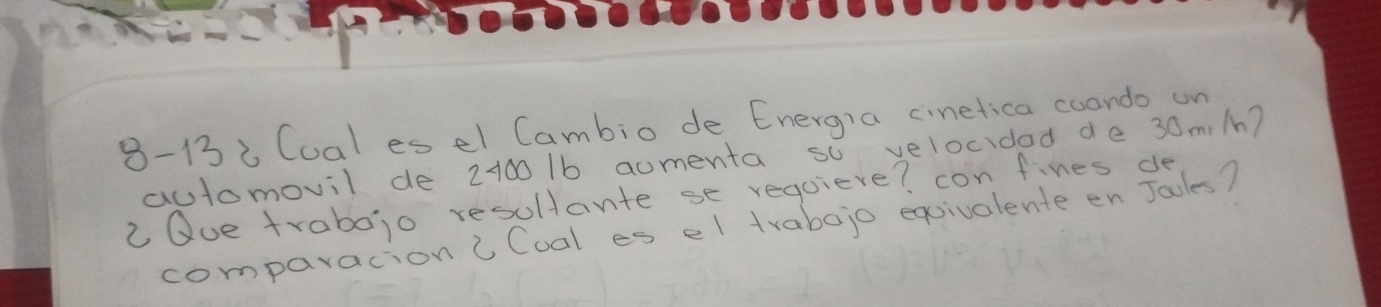 8-13 ¿ Cual es el Cambio de Energia cinetica cuando un
automovil de 2400 lb aumenta su velocidad de 30 mi/h?
¿ Que trabajo resultante se requiere? con fines de
comparacion ¿ Cual es el trabajo equivalente en Joules?